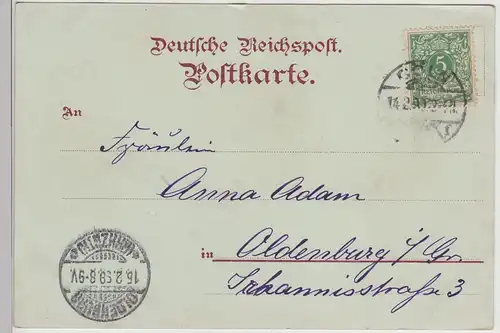 Deutsche Reichspost.
Postkarte.
5
CÖLN
14.2.
An
Fräulein
Anna Adam
in Oldenburg i/Gr.
Johannisstraße 3
OLDENBURG
16.2.99.8-9V.